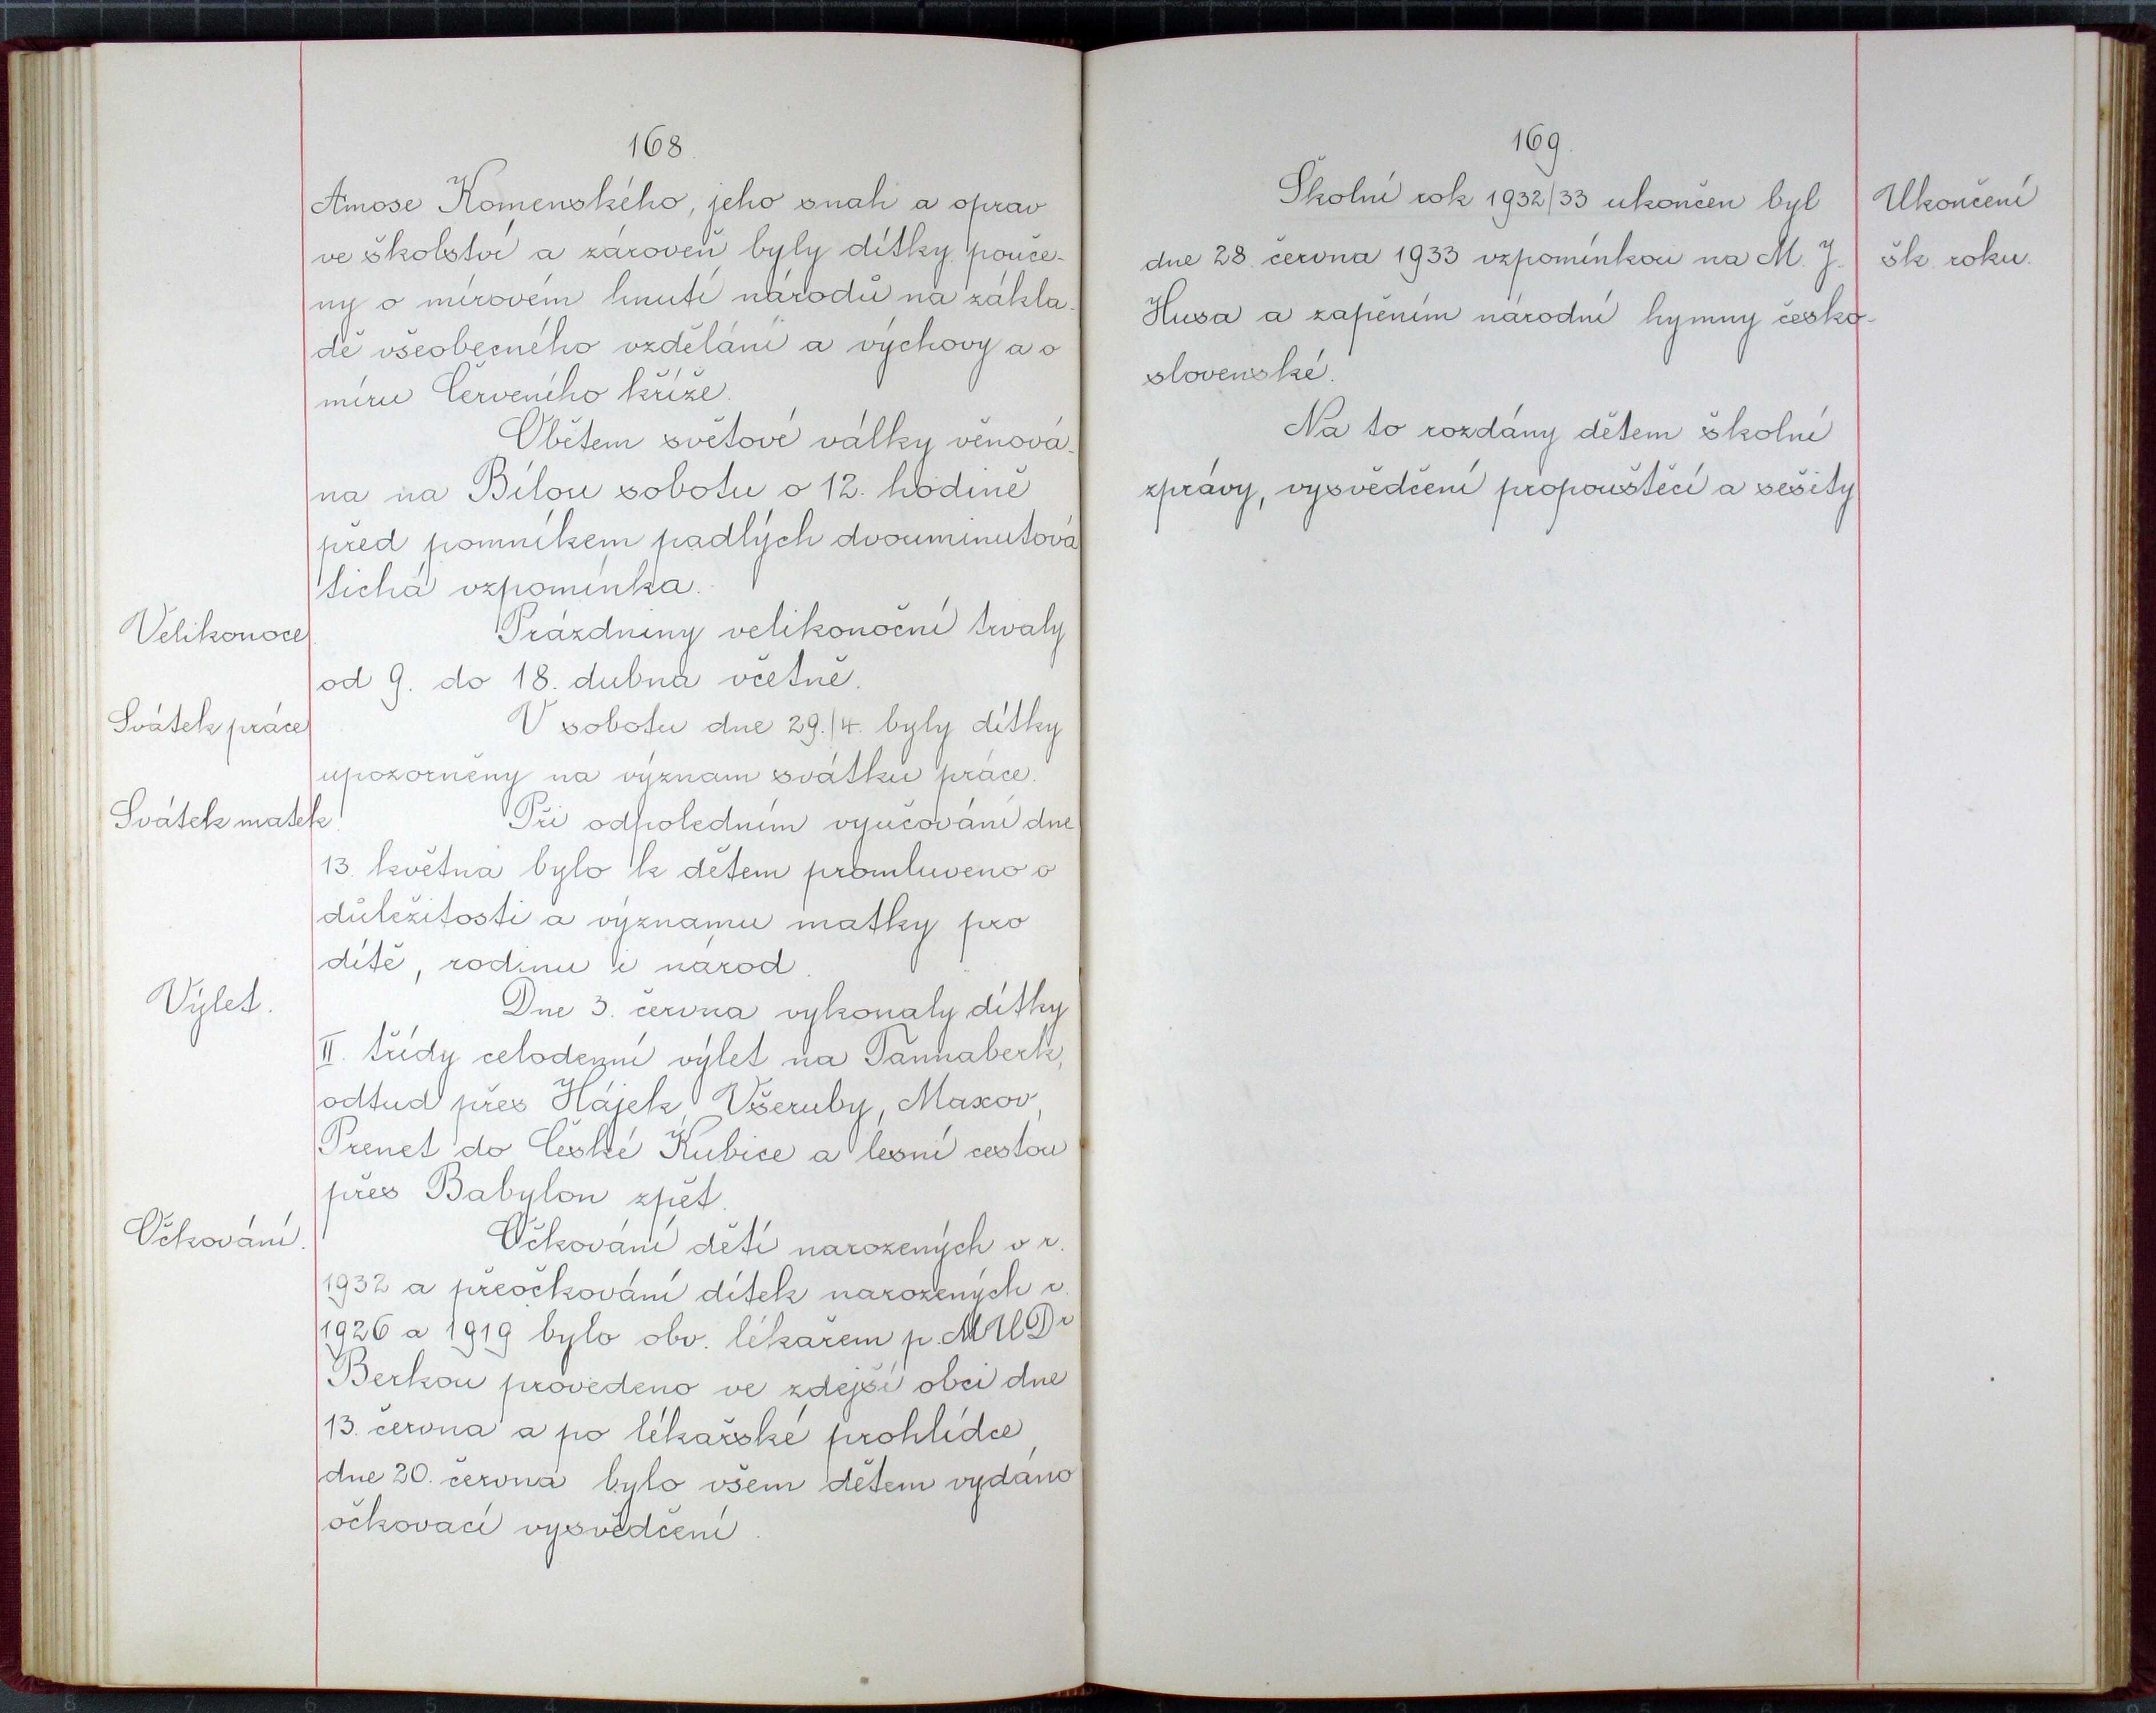 168
Amose Komenského, jeho snah a oprav
ve školství a zároveň byly dítky pouče-
ny o mírovém hnutí národů na zákla-
dě všeobecného vzdělání a výchovy a o
míru Červeného kříže.
Obětem světové války věnová-
na na Bílou sobotu o 12. hodině
před pomníkem padlých dvouminutová
tichá vzpomínka.
Velikonoce.
Prázdniny velikonoční trvaly
od 9. do 18. dubna včetně.
Svátek práce
V sobotu dne 29./4. byly dítky
upozorněny na význam svátku práce.
Svátek matek.
Při odpoledním vyučování dne
13. května bylo k dětem promluveno o
důležitosti a významu matky pro
dítě, rodinu i národ.
Výlet.
Dne 3. června vykonaly dítky
II. třídy celodenní výlet na Tannaberk,
odtud přes Hájek, Všeruby, Maxov,
Prenet do České Kubice a lesní cestou
přes Babylon zpět.
Očkování.
Očkování dětí narozených v r.
1932 a přeočkování dítek narozených r.
1926 a 1919 bylo obv. lékařem p. MUDr
Berkou provedeno ve zdejší obci dne
13. června a po lékařské prohlídce,
dne 20. června bylo všem dětem vydáno
očkovací vysvědčení.
169.
Školní rok 1932/33 ukončen byl
dne 28. června 1933 vzpomínkou na M. J.
Husa a zapěním národní hymny česko-
slovenské.
Na to rozdány dětem školní
zprávy, vysvědčení propouštěcí a sešity
Ukončení
šk. roku.